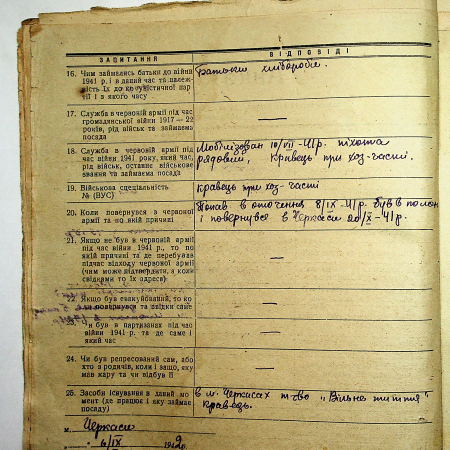 ЗАПИТАННЯ
ВІДПОВІДІ
16. Чим займались батьки до війни
1941 р. і в даний час та належ-
ність їх до комуністичної пар-
тії і з якого часу
Батьки хлібороби.
17. Служба в червоній армії під час
громадянської війни 1917 — 22
років, рід військ та займаема
посада
—
18. Служба в червоній армії під
час війни 1941 року, який час,
рід військ, останне військове
звання та займаема посада
Мобілізован 10/VII-41р. піхота
рядовий, кравець при хоз-часті.
19. Військова спеціальність
№ (ВУС)
кравець при хоз-часті
20. Коли повернувся з червоної
армії та по якій причині
Попав в оточення 8/IX-41р. був в полон
і повернувся в Черкаси 20/X-41р.
21. Якщо не був в червоній армії
під час війни 1941 р., то по
якій причині та де перебував
підчас відходу червоної армії
(чим може підтвердити, з коли
свідками то їх адреса)
—
22. Якщо був евакуйований, то ко
ли повернувся та звідки саме
—
23. Чи був в партизанах під час
війни 1941 р. та де саме і
який час
—
24. Чи був репресований сам, або
хто з родичів, коли і защо, яку
мав кару та чи відбув її
—
25. Засоби існування в даний мо
мент (де працює і яку займає
посаду)
в м. Черкасах т-во „Вільне життя"
кравець.
м. Черкаси
6/IX 1942р.